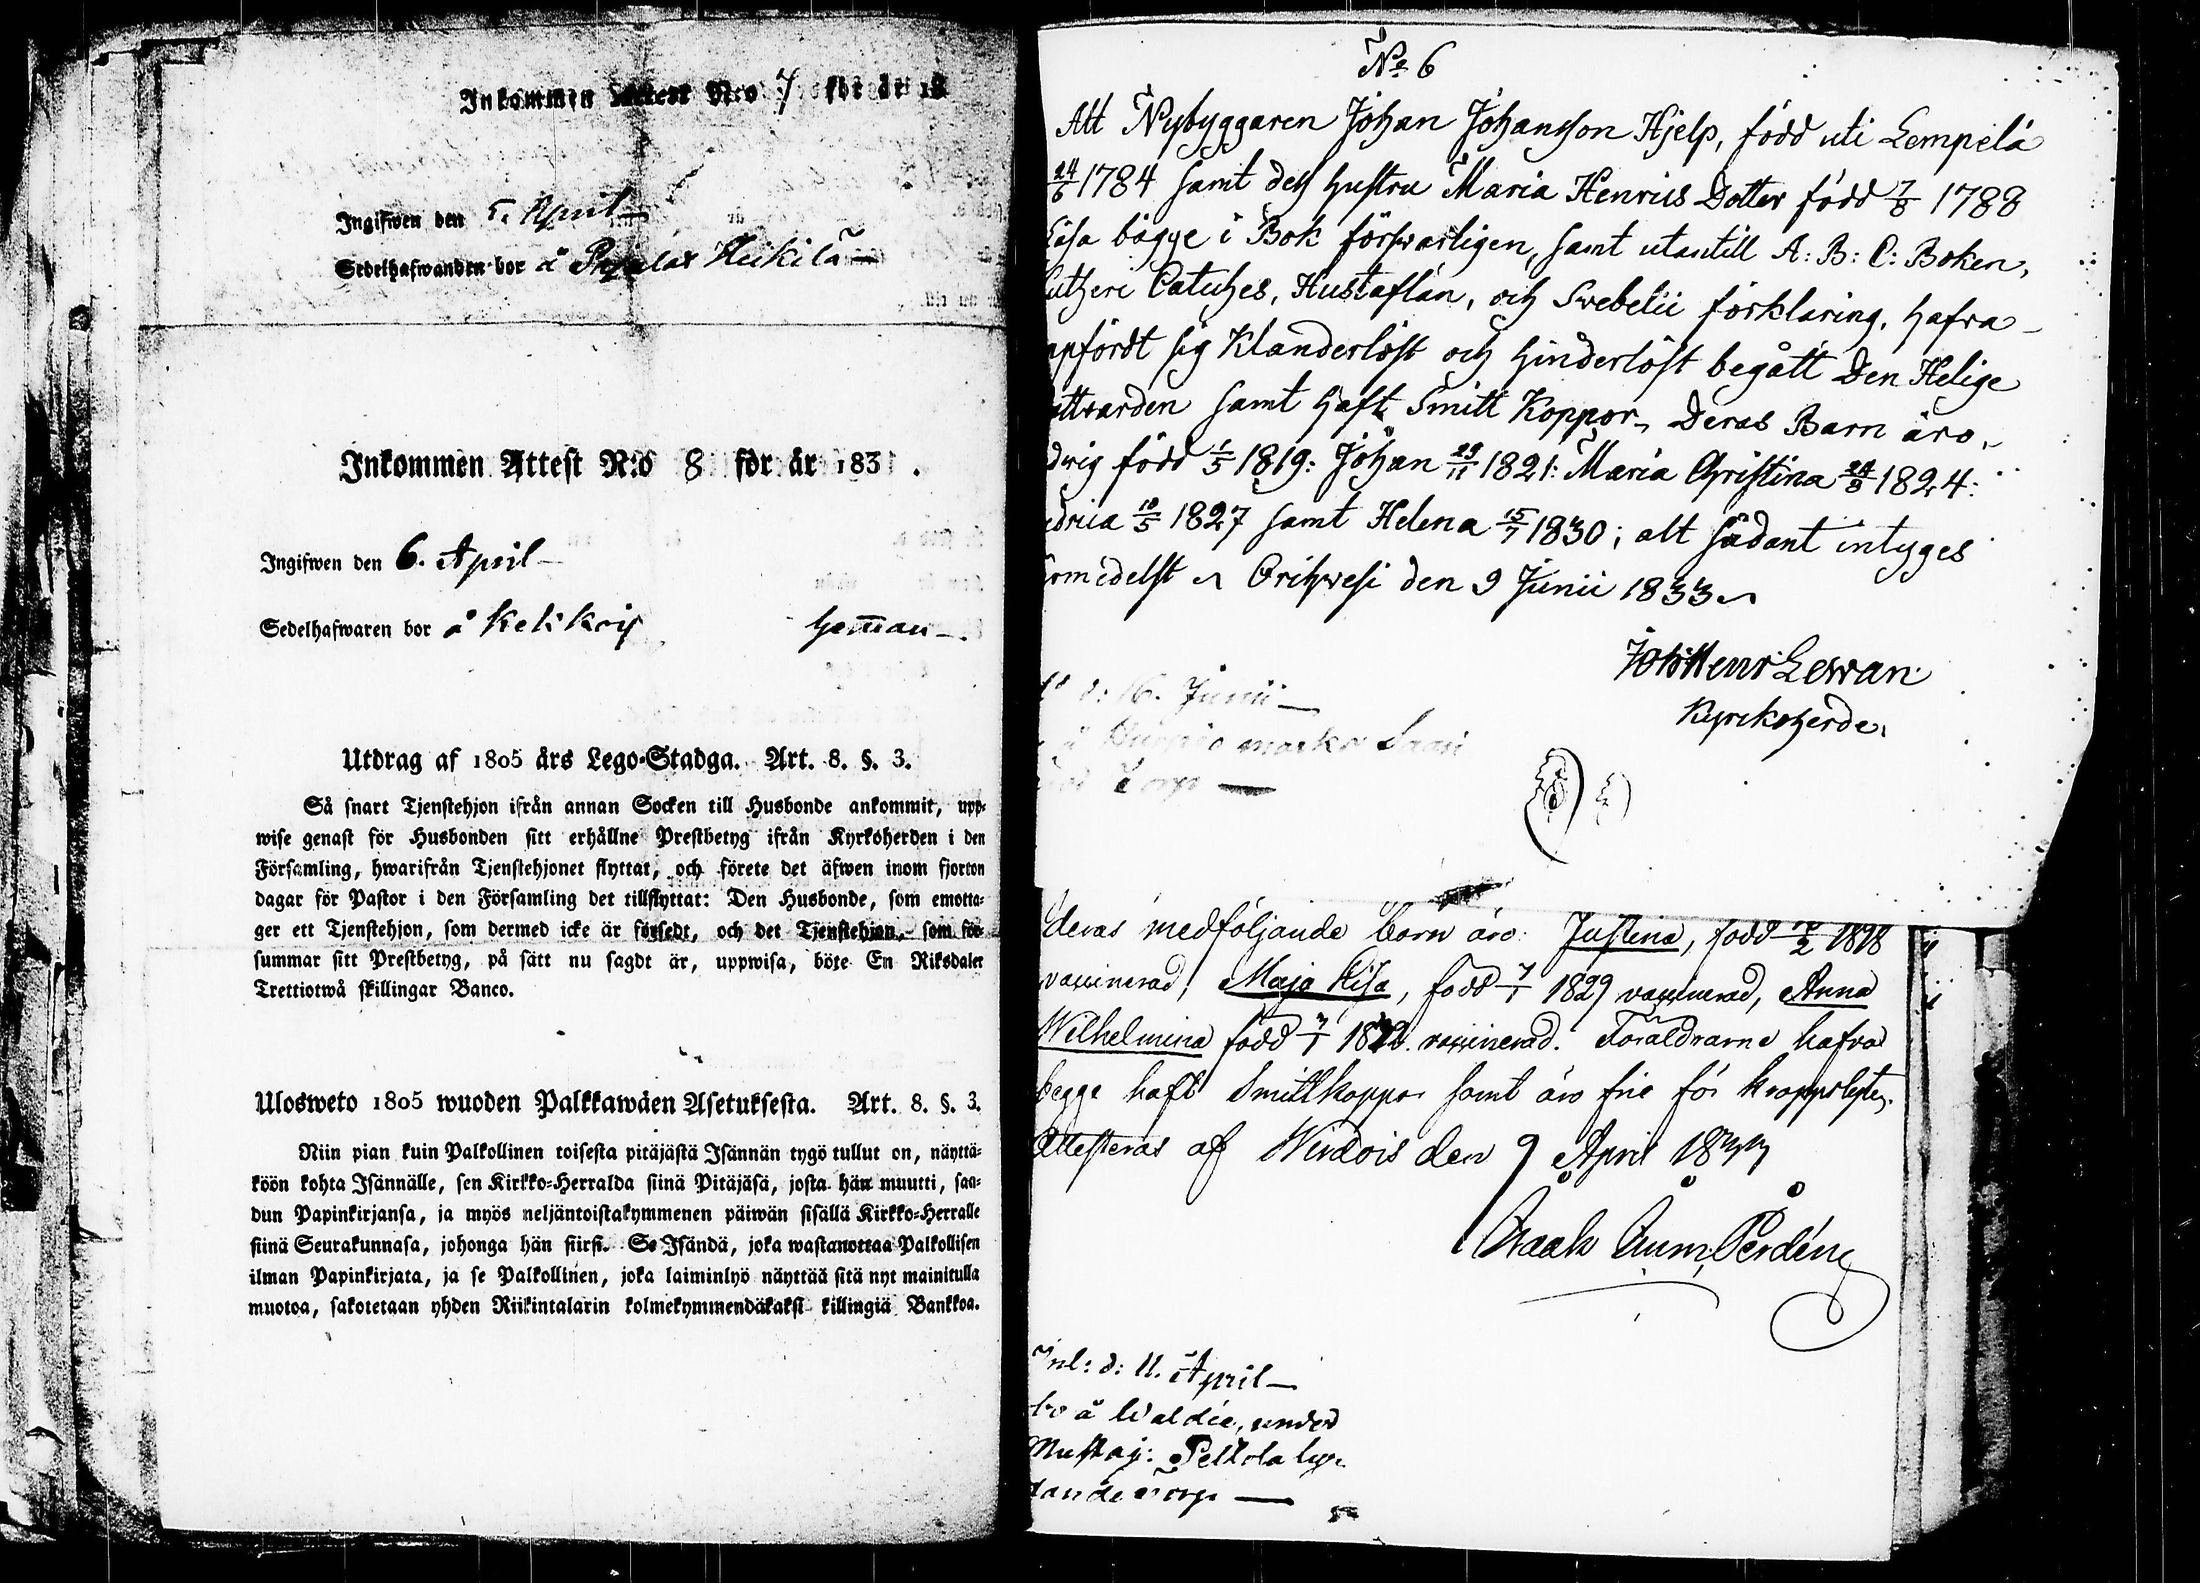 Inkommen Attest N:o 7 för år 18
Ingifwen den 5. April
Sedelhafwanden bor å Heikilä
Inkommen Attest N:o 8 för år 183 .
Ingifwen den 6. April
Sedelhafwaren bor å Kelikois heman
Utdrag af 1805 års Lego-Stadga. Art. 8. §. 3.
Så snart Tjenstehjon ifrån annan Socken till Husbonde ankommit, upp-
wise genast för Husbonden sitt erhållne Prestbetyg ifrån Kyrkoherden i den
Församling, hwarifrån Tjenstehjonet flyttat, och förete det äfwen inom fjorton
dagar för Pastor i den Församling det tillflyttat: Den Husbonde, som emotta-
ger ett Tjenstehjon, som dermed icke är försedt, och det Tjenstehjon, som för-
summar sitt Prestbetyg, på sätt nu sagdt är, uppwisa, böte En Riksdaler
Trettiotwå skillingar Banco.
Ulosweto 1805 wuoden Palkkawäen Asetuksesta. Art. 8. §. 3.
Niin pian kuin Palkollinen toisesta pitäjästä Isännän tygö tullut on, näyttä-
köön kohta Isännälle, sen Kirkko-Herralda siinä Pitäjäsä, josta hän muutti, saa-
dun Papinkirjansa, ja myös neljäntoistakymmenen päiwän sisällä Kirkko-Herralle
siinä Seurakunnasa, johonga hän siirsi. Se Isändä, joka wastanottaa Palkollisen
ilman Papinkirjata, ja se Palkollinen, joka laiminlyö näyttää sitä nyt mainitulla
muotoa, sakotetaan yhden Riikintalarin kolmekymmendäkaksi killingiä Bankkoa.
No 6
Att Nybyggaren Johan Johansson Hjelp, född uti Lempelä
24/6 1784 samt dess hustru Maria Henrics Dotter född 7/8 1788
Läsa bägge i Bok förswarligen, samt utantill A: B: C: Boken,
Lutheri Cateches, Hustaflan, och Svebelii förklaring, hafva
uppfördt sig klanderlöst och hinderlöst begått Den Helige
Nattvarden samt haft Smitt Koppor, Deras Barn äro,
dvig född 1/5 1819: Johan 29/11 1821: Maria Christina 24/8 1824:
drica 10/5 1827 samt Helena 15/7 1830; alt sådant intyges
härmedelst Orihvesi den 9 Junii 1833
Joh Henr Lewan
Kyrkoherde.
d: 16. Junii
Torp
deras medföljande barn äro: Justina, född 18/2 1818
vaccinerad, Maja Lisa, född 7/1 1829 vaccinerad, Anna
Wilhelmina född 7/1 1832. vaccinerad. Föräldrarne hafva
begge haft Smittkoppor samt äro frie för kroppslyten.
Attesteras af Wirdois den 9 April 1833
Isaak Perdén
Inl: d: 11. April
bo å under
Mustaj: Peltola ly-
dande Torp